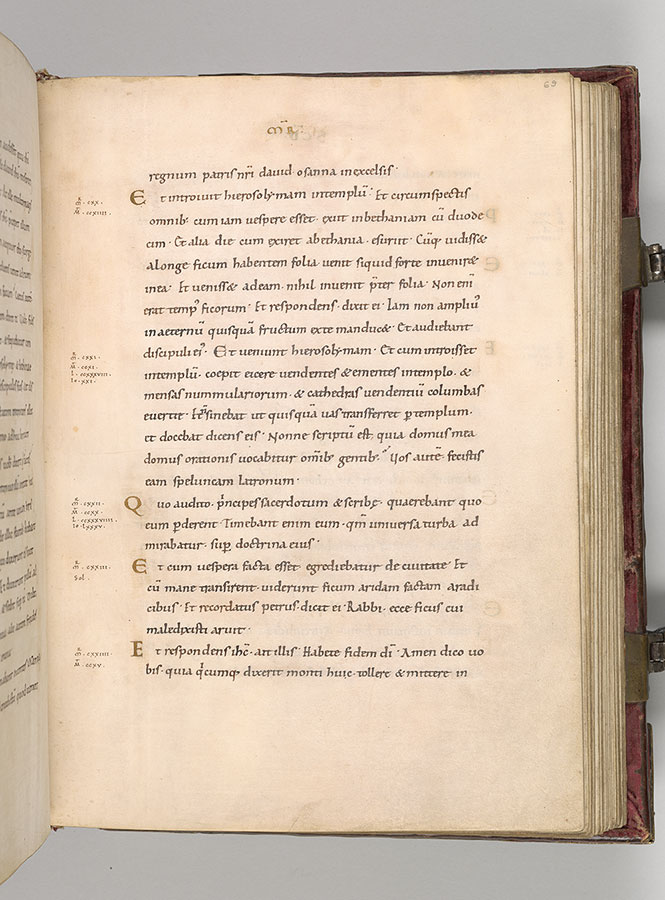 69
regnum patris nr̄i david osanna in excelsis·
Et introivit hierosolymam in templū· Et circumspectis
omnib; cum iam vespere esset· exiit in bethaniam cū duode
cim· Et alia die cum exiret a bethania· esuriit· Cūq; vidiss&
a longe ficum habentem folia· venit siquid forte invenir&
in ea· Et veniss& ad eam· nihil invenit pt̄er folia· Non enī
erat temp' ficorum· Et respondens· dixit ei· Iam non ampliu'
in aeternū quisquā fructum ex te manduc&· Et audiebant
discipuli ei'· Et veniunt hierosolymam· Et cum introisset
in templū· coepit eicere vendentes & ementes in templo· &
mensas nummulariorum· & cathedras vendentiū columbas
evertit· sinebat ut quisquā vas transferret p templum·
et docebat dicens eis· Nonne scriptū est· quia domus mea
domus orationis vocabitur om̄ib; gentib;· Vos autē fecistis
eam speluncam latronum·
Quo audito· p̄ncipes sacerdotum & scribę· quaerebant quo
eum pderent· Timebant enim eum· qm̄ universa turba ad
mirabatur· sup doctrina eius·
Et cum vespera facta esset egrediebatur de civitate· Et
cū mane transirent· viderunt ficum aridam factam a radi
cibus· Et recordatus petrus· dicit ei· Rabbi· ecce ficus cui
maledixisti aruit·
Et respondens ihc̄· ait illis· Habete fidem dī· Amen dico vo
bis· quia q̄cumq; dixerit monti huic· tollere & mittere in
m̄· cxx·
m̄· ccxiiii·
m̄· cxxi·
m̄· ccxi·
l· ccxxxviii·
io· xxi·
m̄· cxxii·
m̄· ccxx·
io· lxxxv·
m̄· cxxiii·
sol·
m̄· cxxiiii·
m̄· ccxv·